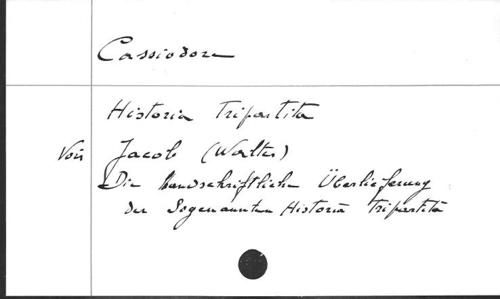 Cassiodore
Historia Tripartita
Voir Jacob (Walter)
Die handschriftliche Überlieferung
der sogenannten Historia Tripartita